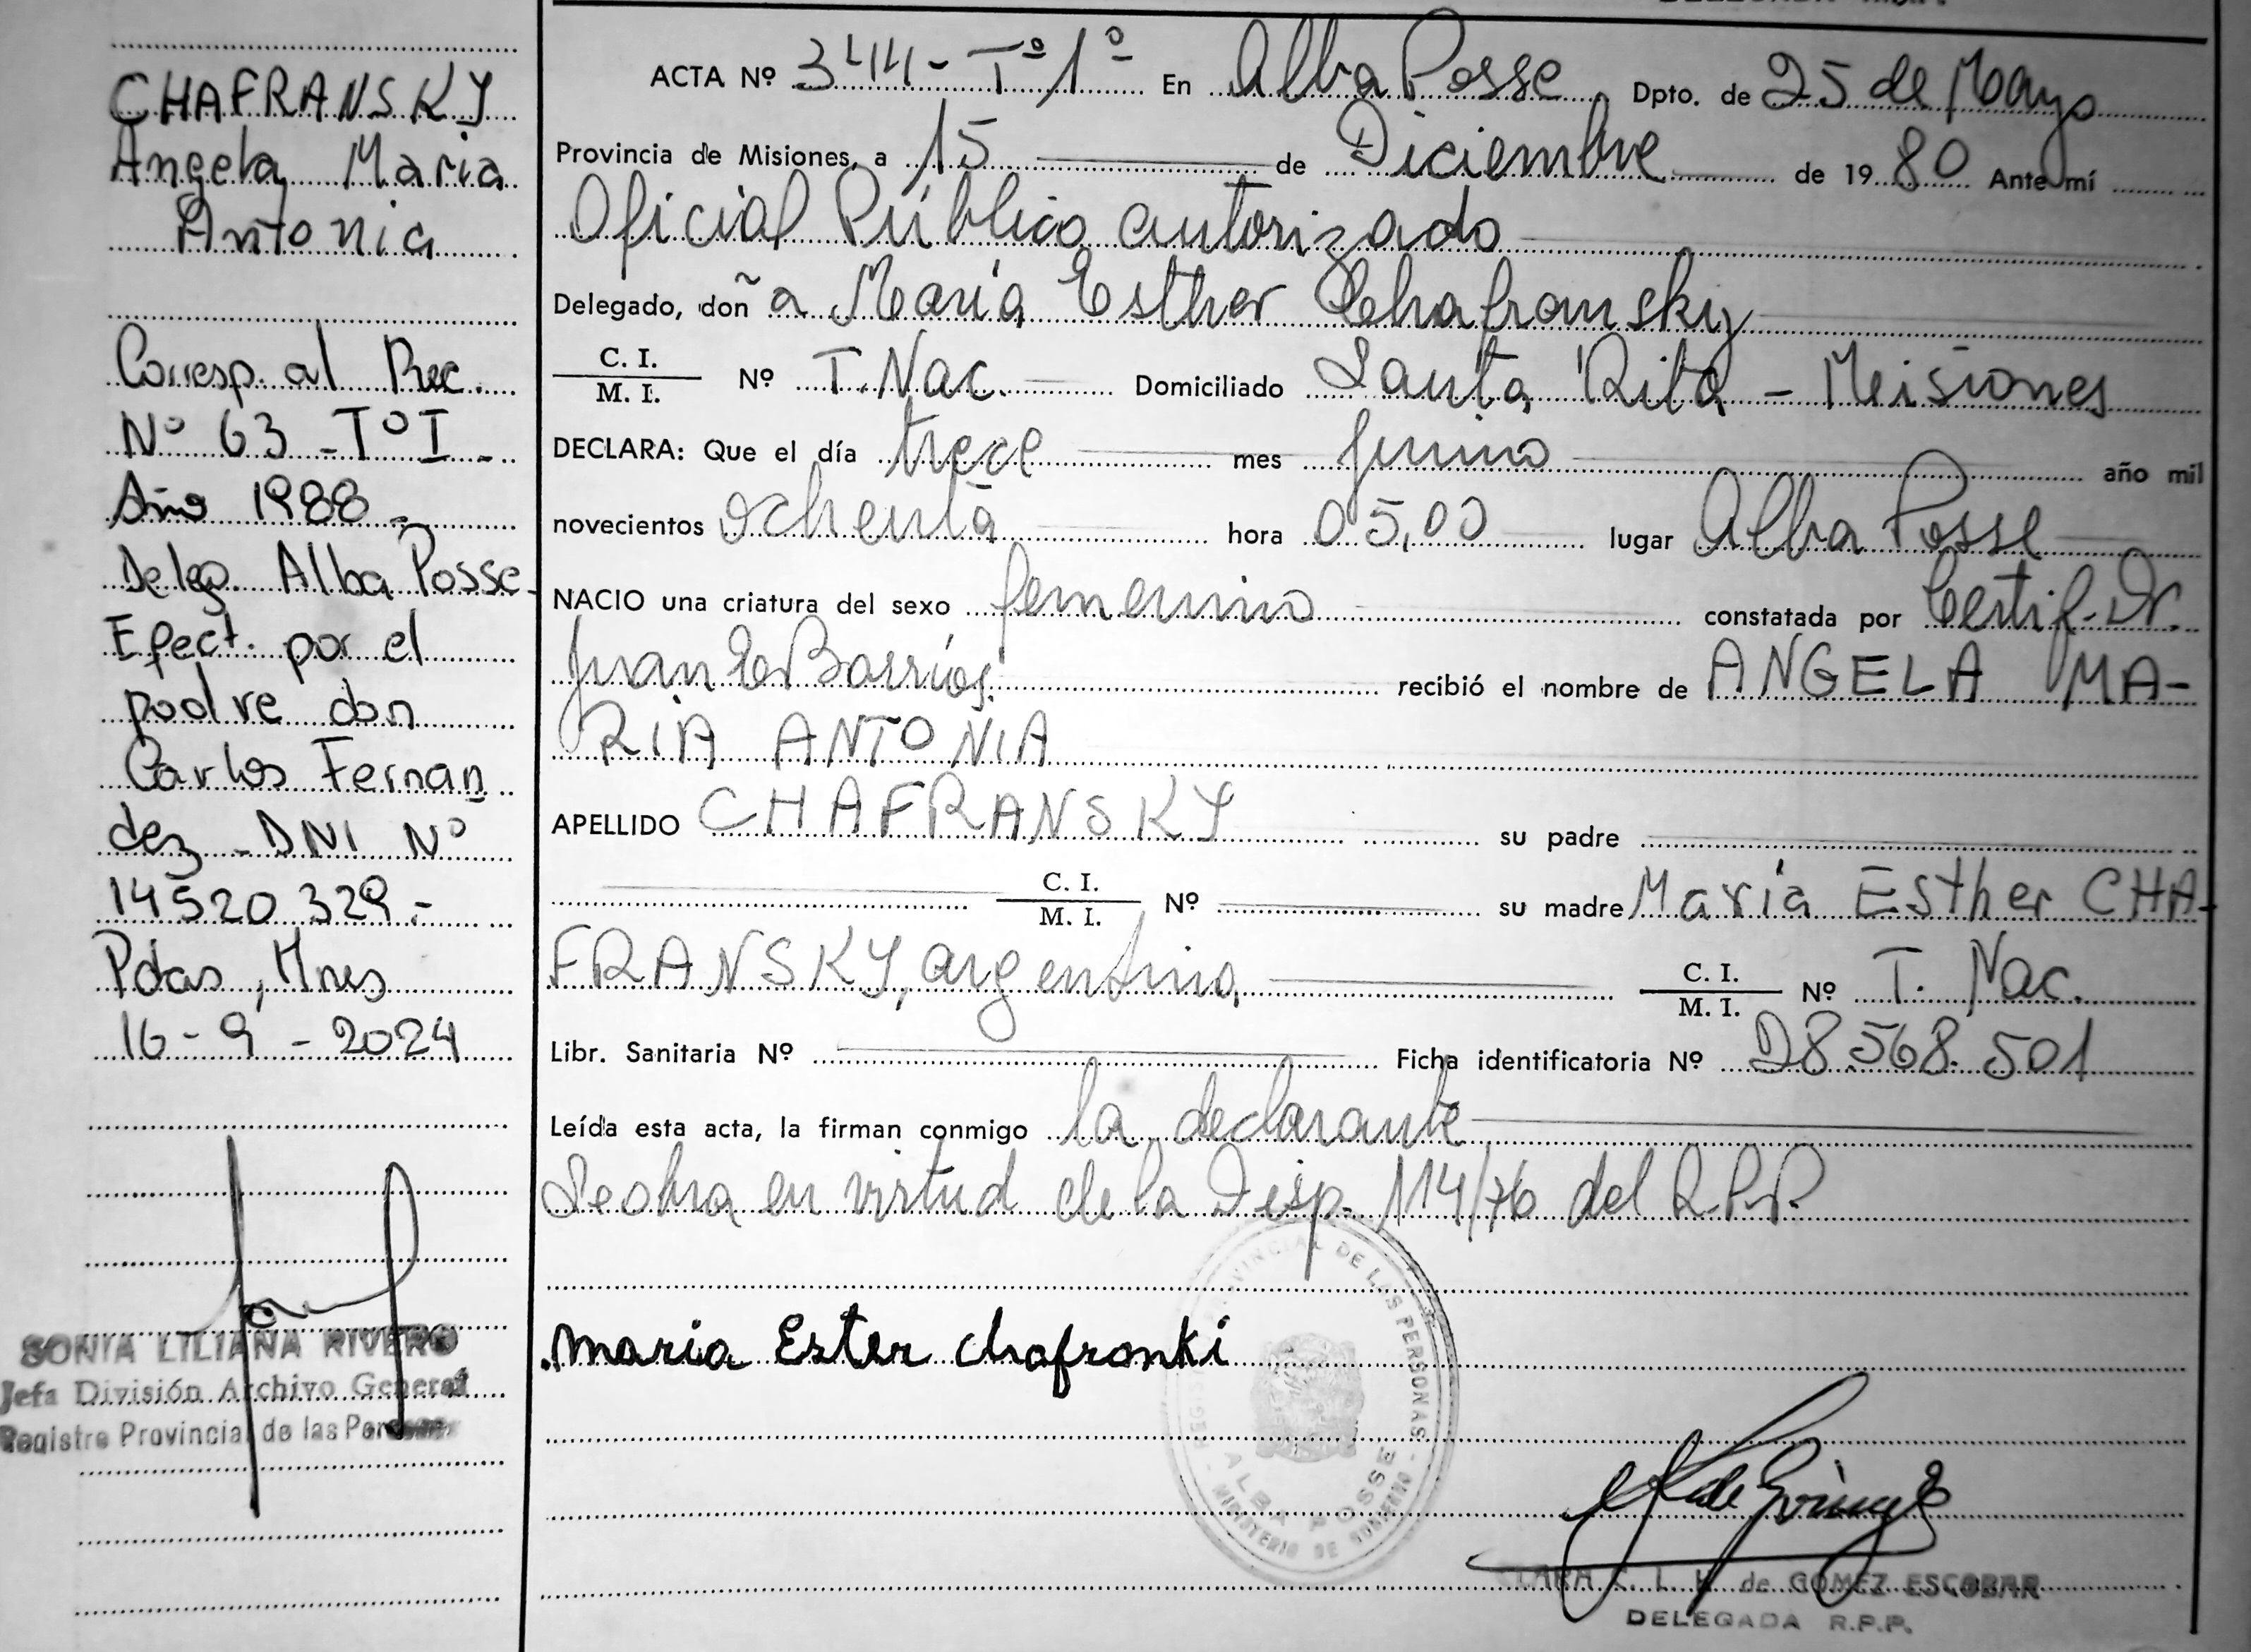 CHAFRANSKY
Angela Maria
Antonia
Corresp. al Rec.
Nº 63 - Tº I -
Año 1988 -
Deleg. Alba Posse -
Efect. por el
padre don
Carlos Fernan
dez - DNI Nº
14520329.-
Pdas, Mnes
16 - 9 - 2024
SONIA LILIANA RIVERO
Jefa División Archivo General
Registro Provincial de las Personas
ACTA Nº 344 - Tº 1º - En Alba Posse Dpto. de 25 de Mayo
Provincia de Misiones, a 15 de Diciembre de 1980 Ante mí
Oficial Público autorizado
Delegado, doña María Esther Chafransky
C. I. / M. I. Nº T. Nac. Domiciliado Santa Rita - Misiones
DECLARA: Que el día trece mes junio año mil
novecientos ochenta hora 05,00 lugar Alba Posse
NACIO una criatura del sexo femenino constatada por Certif. Dr.
Juan Barrios recibió el nombre de ANGELA MA-
RIA ANTONIA
APELLIDO CHAFRANSKY su padre
C. I. / M. I. Nº su madre María Esther CHA-
FRANSKY, argentina C. I. / M. I. Nº T. Nac.
Libr. Sanitaria Nº Ficha identificatoria Nº 28.568.501
Leída esta acta, la firman conmigo la declarante
Se obra en virtud de la Disp. 114/76 del R.P.P.
maria Ester chafronki
REGISTRO PROVINCIAL DE LAS PERSONAS
ALBA POSSE
MINISTERIO DE GOBIERNO
CLARA C. L. H. de GOMEZ ESCOBAR
DELEGADA R.P.P.